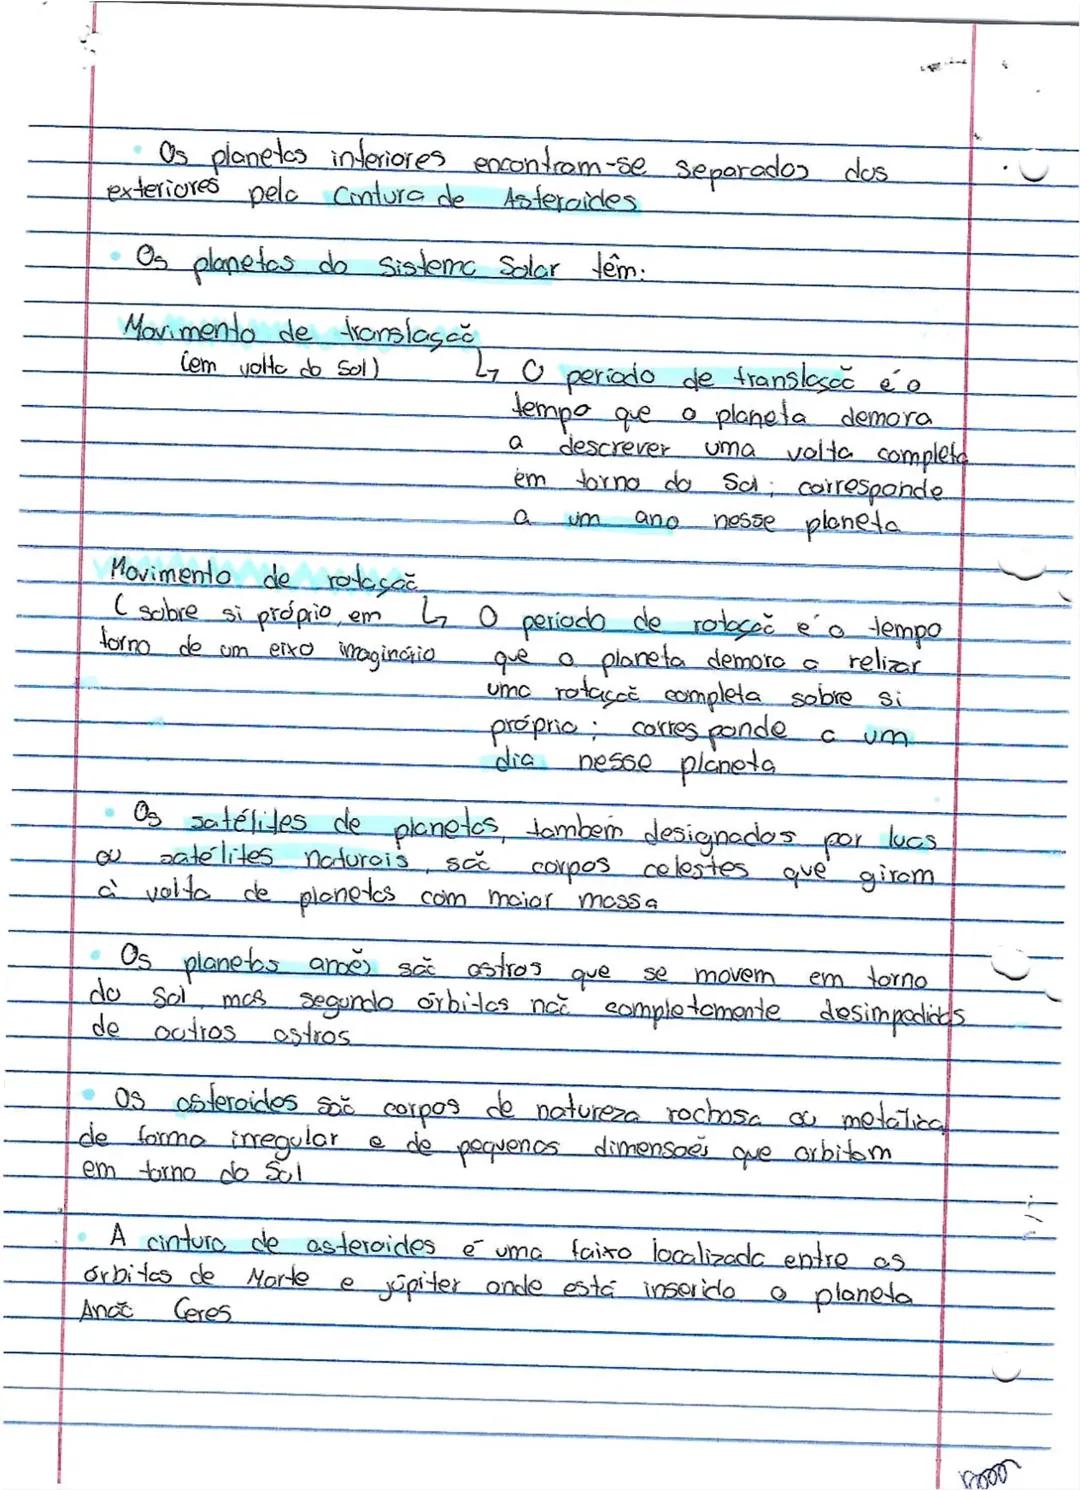 • Os planetas interiores encontram-se separados dos
exteriores pela Cintura de Asteroides
• Os planetas do Sistema Solar têm:
Movimento de translação
(em volta do Sol)
↳ O periodo de translação é o
tempo que o planeta demora
a descrever uma volta completa
em torno do Sol; corresponde
a um ano nesse planeta
Movimento de rotação
(sobre si próprio, em
torno de um eixo imaginário
↳ O periodo de rotação é o tempo
que o planeta demora a relizar
uma rotação completa sobre si
próprio; corresponde a um
dia nesse planeta
• Os satélites de planetas, também designados por luas
ou satélites naturais, são corpos celestes que giram
à volta de planetas com maior massa
• Os planetas anões são astros que se movem em torno
do Sol, mas segundo órbitas não completamente desimpedidas
de outros astros
• Os asteroides são corpos de natureza rochosa ou metálica,
de forma irregular e de pequenas dimensões que orbitam
em torno do Sol
• A cintura de asteroides é uma faixa localizada entre as
órbitas de Marte e júpiter onde está inserido o planeta
Anão Ceres